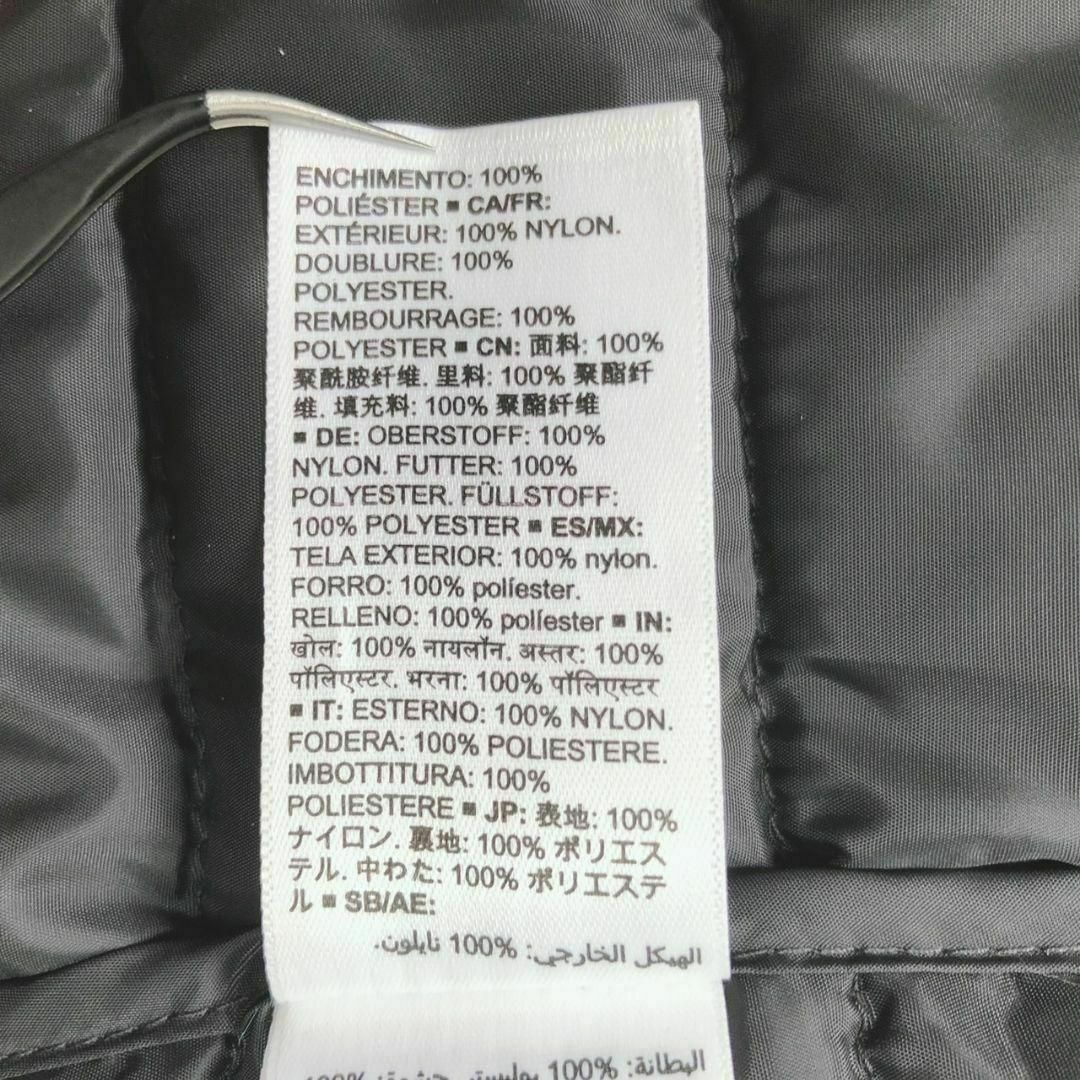 ENCHIMENTO: 100%
POLIÉSTER ■ CA/FR:
EXTÉRIEUR: 100% NYLON.
DOUBLURE: 100%
POLYESTER.
REMBOURRAGE: 100%
POLYESTER ■ CN: 面料: 100%
聚酰胺纤维. 里料: 100% 聚酯纤
维. 填充料: 100% 聚酯纤维
■ DE: OBERSTOFF: 100%
NYLON. FUTTER: 100%
POLYESTER. FÜLLSTOFF:
100% POLYESTER ■ ES/MX:
TELA EXTERIOR: 100% nylon.
FORRO: 100% políester.
RELLENO: 100% políester ■ IN:
खोल: 100% नायलॉन. अस्तर: 100%
पॉलिएस्टर. भरना: 100% पॉलिएस्टर
■ IT: ESTERNO: 100% NYLON.
FODERA: 100% POLIESTERE.
IMBOTTITURA: 100%
POLIESTERE ■ JP: 表地: 100%
ナイロン. 裏地: 100% ポリエス
テル. 中わた: 100% ポリエステ
ル ■ SB/AE:
الهيكل الخارجي: %100 نايلون.
البطانة: %100 بوليستر. حشوة: %100